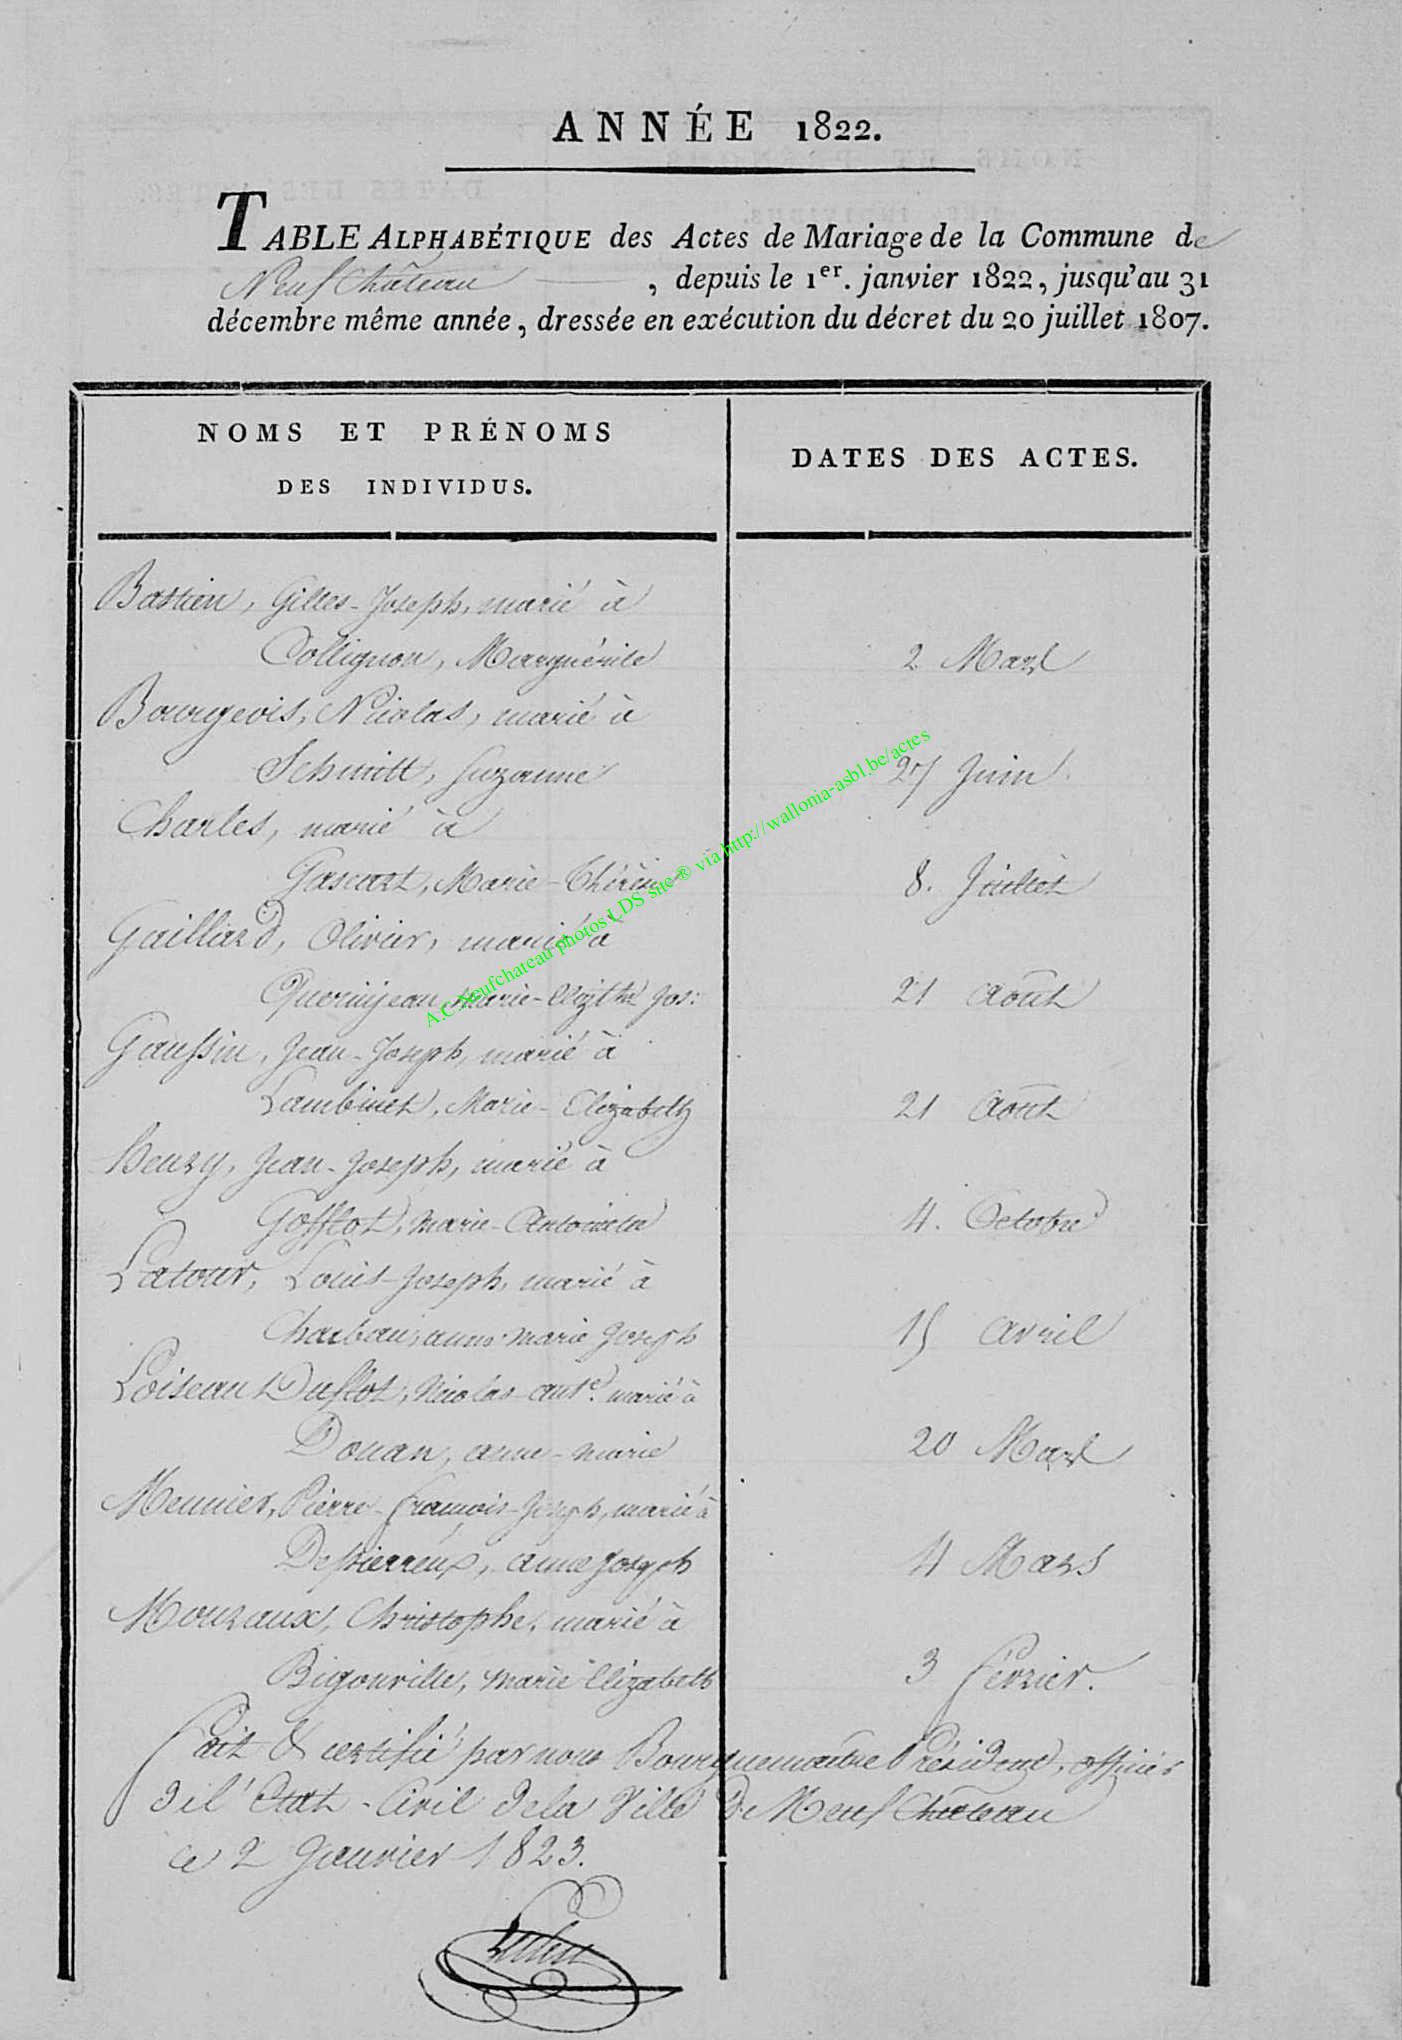 ANNÉE 1822.
TABLE ALPHABÉTIQUE des Actes de Mariage de la Commune de
Neufchâteau, depuis le 1er. janvier 1822, jusqu'au 31
décembre même année, dressée en exécution du décret du 20 juillet 1807.
NOMS ET PRÉNOMS
DES INDIVIDUS.
DATES DES ACTES.
Bastien, Gilles-Joseph, marié à
Collignon, Marguérite 2 Mars
Bourgeois, Nicolas, marié à
Schmitt, Suzanne 27 Juin
Charles, marié à
Gascart, Marie-Thérèse 8. Juillet
Gaillard, Olivier, marié à
Marie- Jos: 21 Août
Gaussin, Jean-Joseph, marié à
Lambinet, Marie-Elizabeth 21 Août
Henry, Jean-Joseph, marié à
Gofflot, Marie-Antoinette 4. Octobre
Latour, Louis-Joseph, marié à
anne marie Joseph 15 avril
Loiseau Duflot, Nicolas-ante. marié à
Douan, anne-marie 20 Mars
Meunier, Pierre-françois-Joseph, marié à
Despierreux, anne Joseph 4 Mars
Mouzaux, Christophe, marié à
Bigonville, Marie Elizabeth 3 février.
fait & certifié par nous Bourguemaître Président, officier
de l'Etat-Civil de la Ville de Neufchateau
ce 2 Janvier 1823.
A.C. Neufchateau photos LDS site ® via http://wallonia-asbl.be/actes